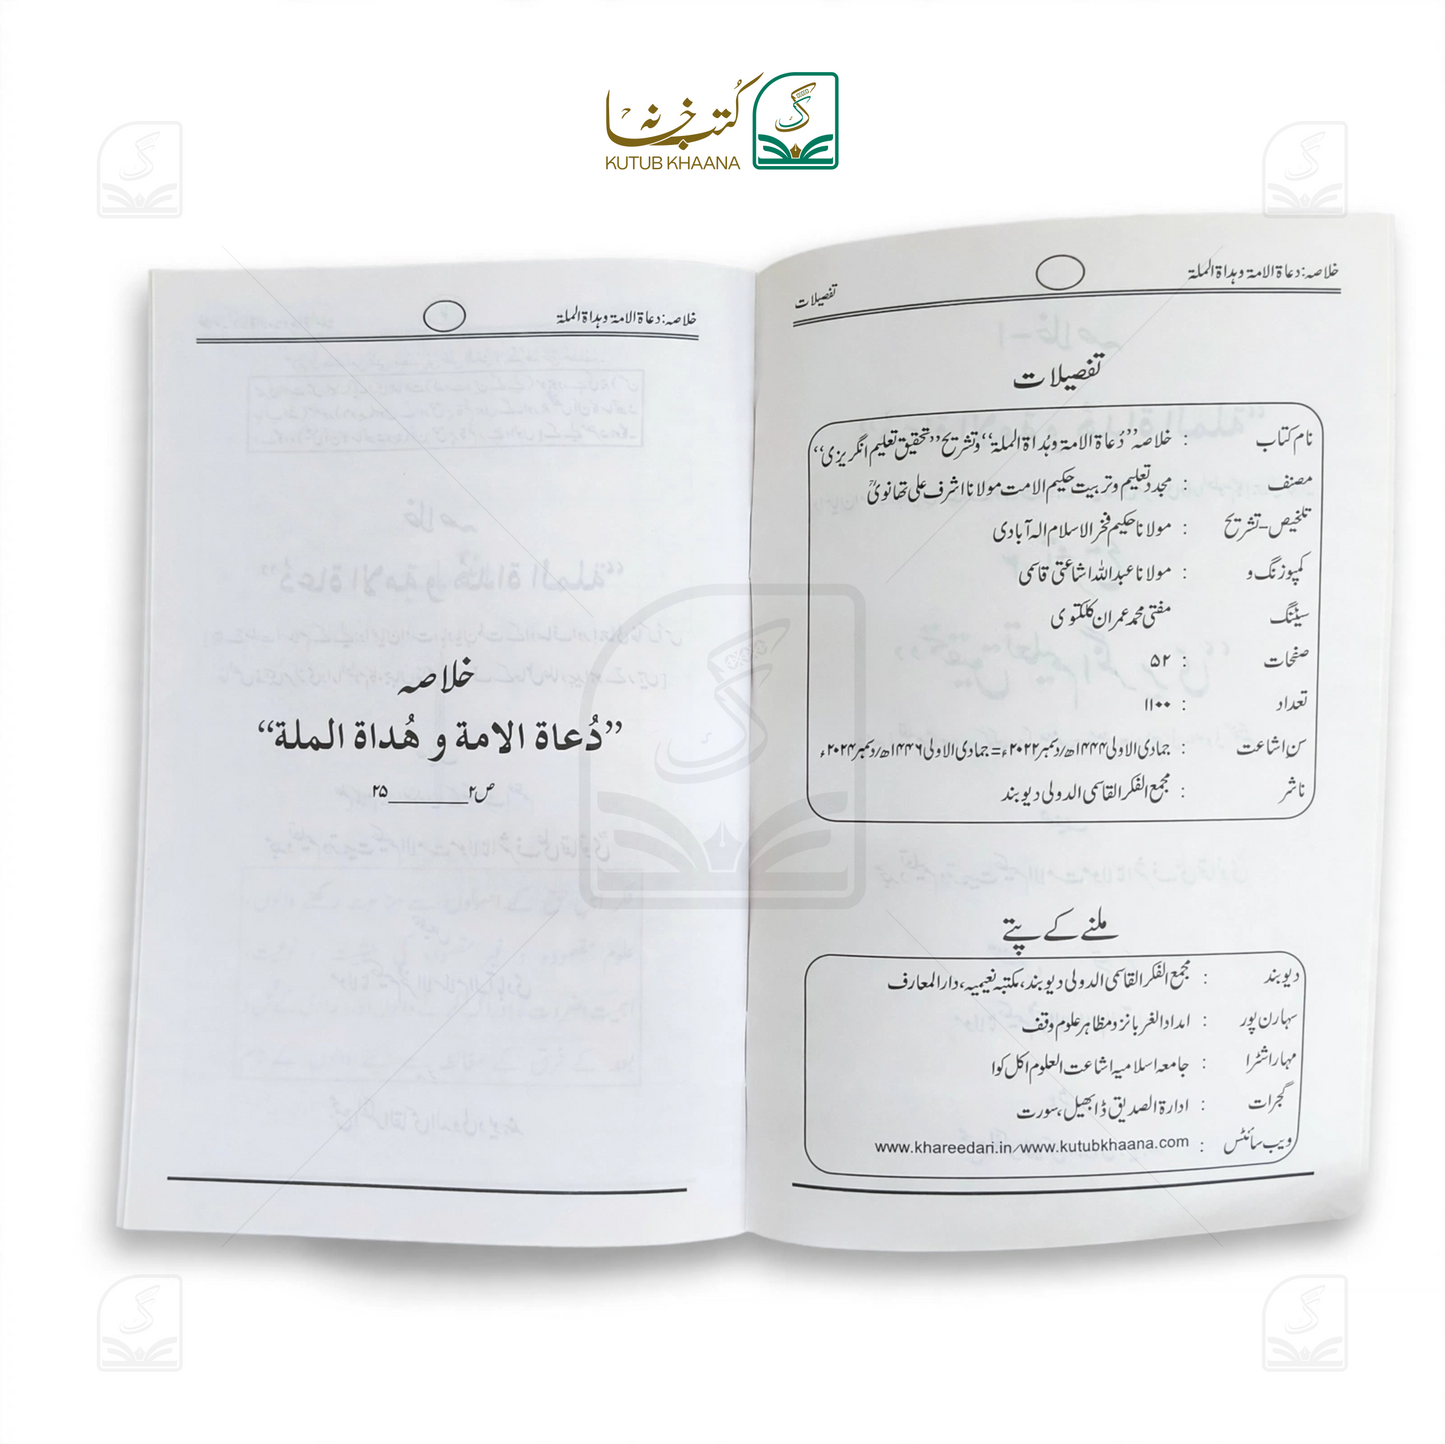 کُتب خانہ
KUTUB KHAANA
خلاصہ: دعاۃ الامۃ وہداۃ الملۃ
تفصیلات
تفصیلات
نام کتاب : خلاصہ ”دُعاۃ الامۃ وہُداۃ الملۃ“ وتشریح ”تحقیق تعلیم انگریزی“
مصنف : مجدد تعلیم وتربیت حکیم الامت مولانا اشرف علی تھانویؒ
تلخیص-تشریح : مولانا حکیم فخر الاسلام الہ آبادی
کمپوزنگ و : مولانا عبداللہ اشاعتی قاسمی
سیٹنگ مفتی محمد عمران کلکتوی
صفحات : ۵۲
تعداد : ۱۱۰۰
سنِ اشاعت : جمادی الاولی ۱۴۴۴ھ/دسمبر ۲۰۲۲ء = جمادی الاولی ۱۴۴۶ھ/دسمبر ۲۰۲۴ء
ناشر : مجمع الفکر القاسمی الدولی دیوبند
ملنے کے پتے
دیوبند : مجمع الفکر القاسمی الدولی دیوبند، مکتبہ نعیمیہ، دارالمعارف
سہارن پور : امداد الغربا نزد مظاہر علوم وقف
مہاراشٹرا : جامعہ اسلامیہ اشاعت العلوم اکل کوا
گجرات : ادارۃ الصدیق ڈابھیل، سورت
ویب سائٹس : www.khareedari.in/www.kutubkhaana.com
خلاصہ: دعاۃ الامۃ وہداۃ الملۃ
خلاصہ
”دُعاة الامة و هُداة الملة“
ص۲________۲۵